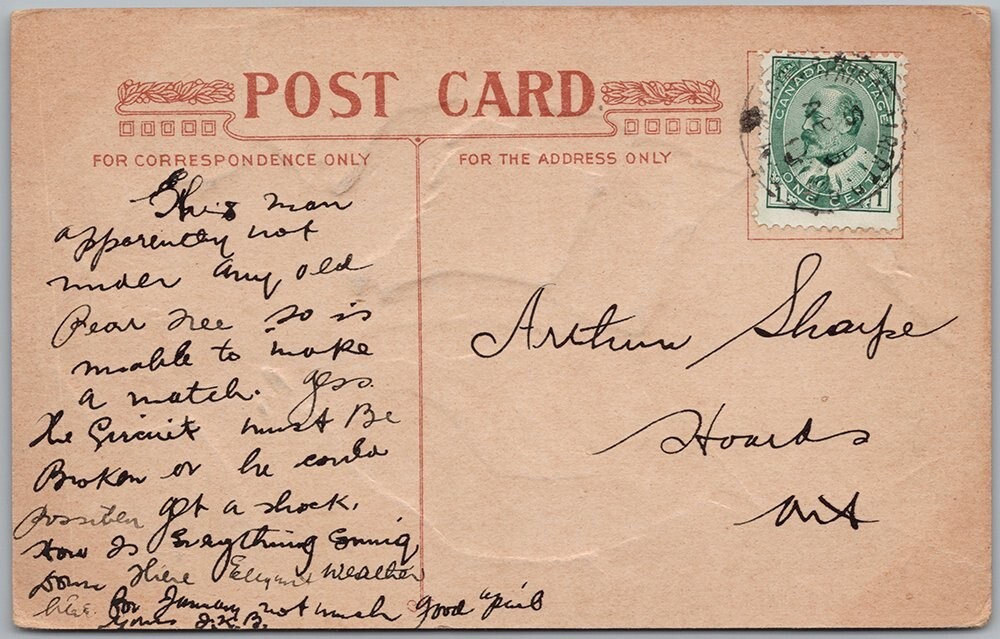 POST CARD
FOR CORRESPONDENCE ONLY
FOR THE ADDRESS ONLY
CANADA POSTAGE
1 ONE CENT 1
This man
apparently not
under any old
Pear Tree so is
unable to make
a match. gess
the Circuit must Be
Broken or he could
possibley get a shock.
How Is Everything
Down There Weather
for January not much good
Yours J.K.B.
Arthur Sharpe
Hoards
Ont